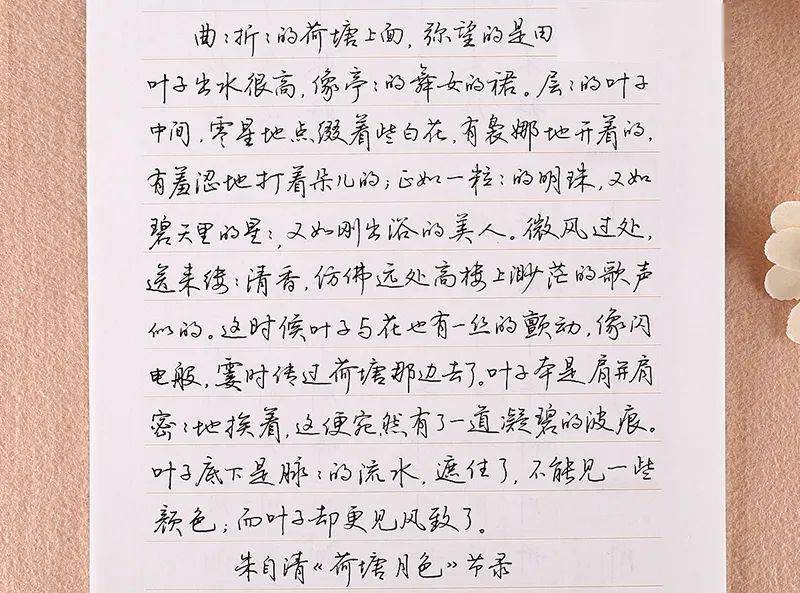 曲:折:的荷塘上面，弥望的是田
叶子出水很高，像亭:的舞女的裙。层:的叶子
中间，零星地点缀着些白花，有袅娜地开着的，
有羞涩地打着朵儿的；正如一粒:的明珠，又如
碧天里的星:，又如刚出浴的美人。微风过处，
送来缕:清香，仿佛远处高楼上渺茫的歌声
似的。这时候叶子与花也有一丝的颤动，像闪
电般，霎时传过荷塘那边去了。叶子本是肩并肩
密:地挨着，这便宛然有了一道凝碧的波痕。
叶子底下是脉:的流水，遮住了，不能见一些
颜色；而叶子却更见风致了。
朱自清《荷塘月色》节录